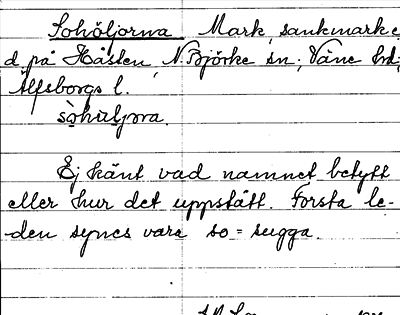 Sohöljorna Mark, sankmarke
d. på Håsten, N. Björke sn; Väne hd;
Älfsborgs l.
sòhuljora.
Ej känt vad namnet betytt
eller hur det uppstått. Första le-
den synes vara so = sugga.